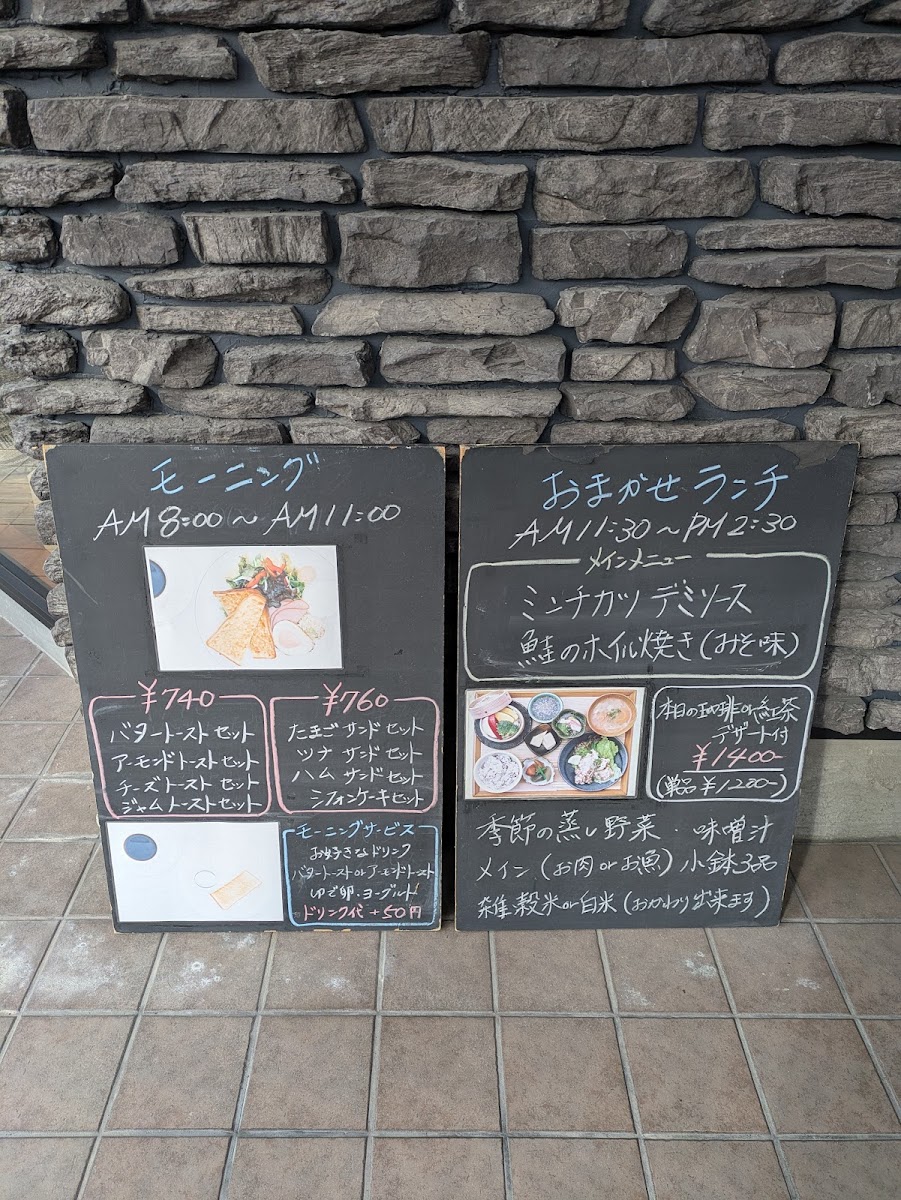 モーニング
AM 8:00 〜 AM 11:00
¥740
バタートーストセット
アーモンドトーストセット
チーズトーストセット
ジャムトーストセット
¥760
たまごサンドセット
ツナサンドセット
ハムサンドセット
シフォンケーキセット
モーニングサービス
お好きなドリンク
バタートーストorアーモンドトースト
ゆで卵・ヨーグルト
ドリンク代 +50円
おまかせランチ
AM 11:30 〜 PM 2:30
メインメニュー
ミンチカツ デミソース
鮭のホイル焼き(みそ味)
本日の珈琲or紅茶
デザート付
¥1400-
(単品 ¥1200-)
季節の蒸し野菜・味噌汁
メイン(お肉orお魚)小鉢3品
雑穀米or白米(おかわり出来ます)